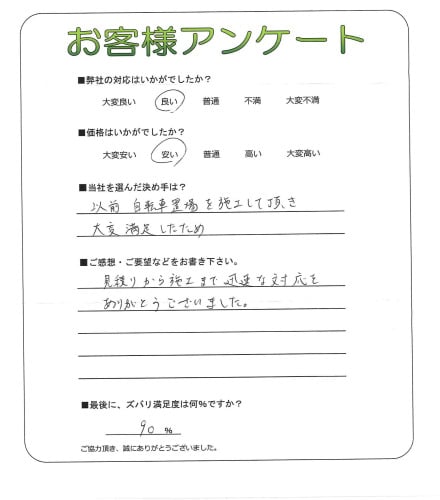 お客様アンケート
■弊社の対応はいかがでしたか?
大変良い 良い 普通 不満 大変不満
■価格はいかがでしたか?
大変安い 安い 普通 高い 大変高い
■当社を選んだ決め手は?
以前 自転車置場を施工して頂き
大変満足したため
■ご感想・ご要望などをお書き下さい。
見積りから施工まで迅速な対応を
ありがとうございました。
■最後に、ズバリ満足度は何%ですか?
90 %
ご協力頂き、誠にありがとうございました。